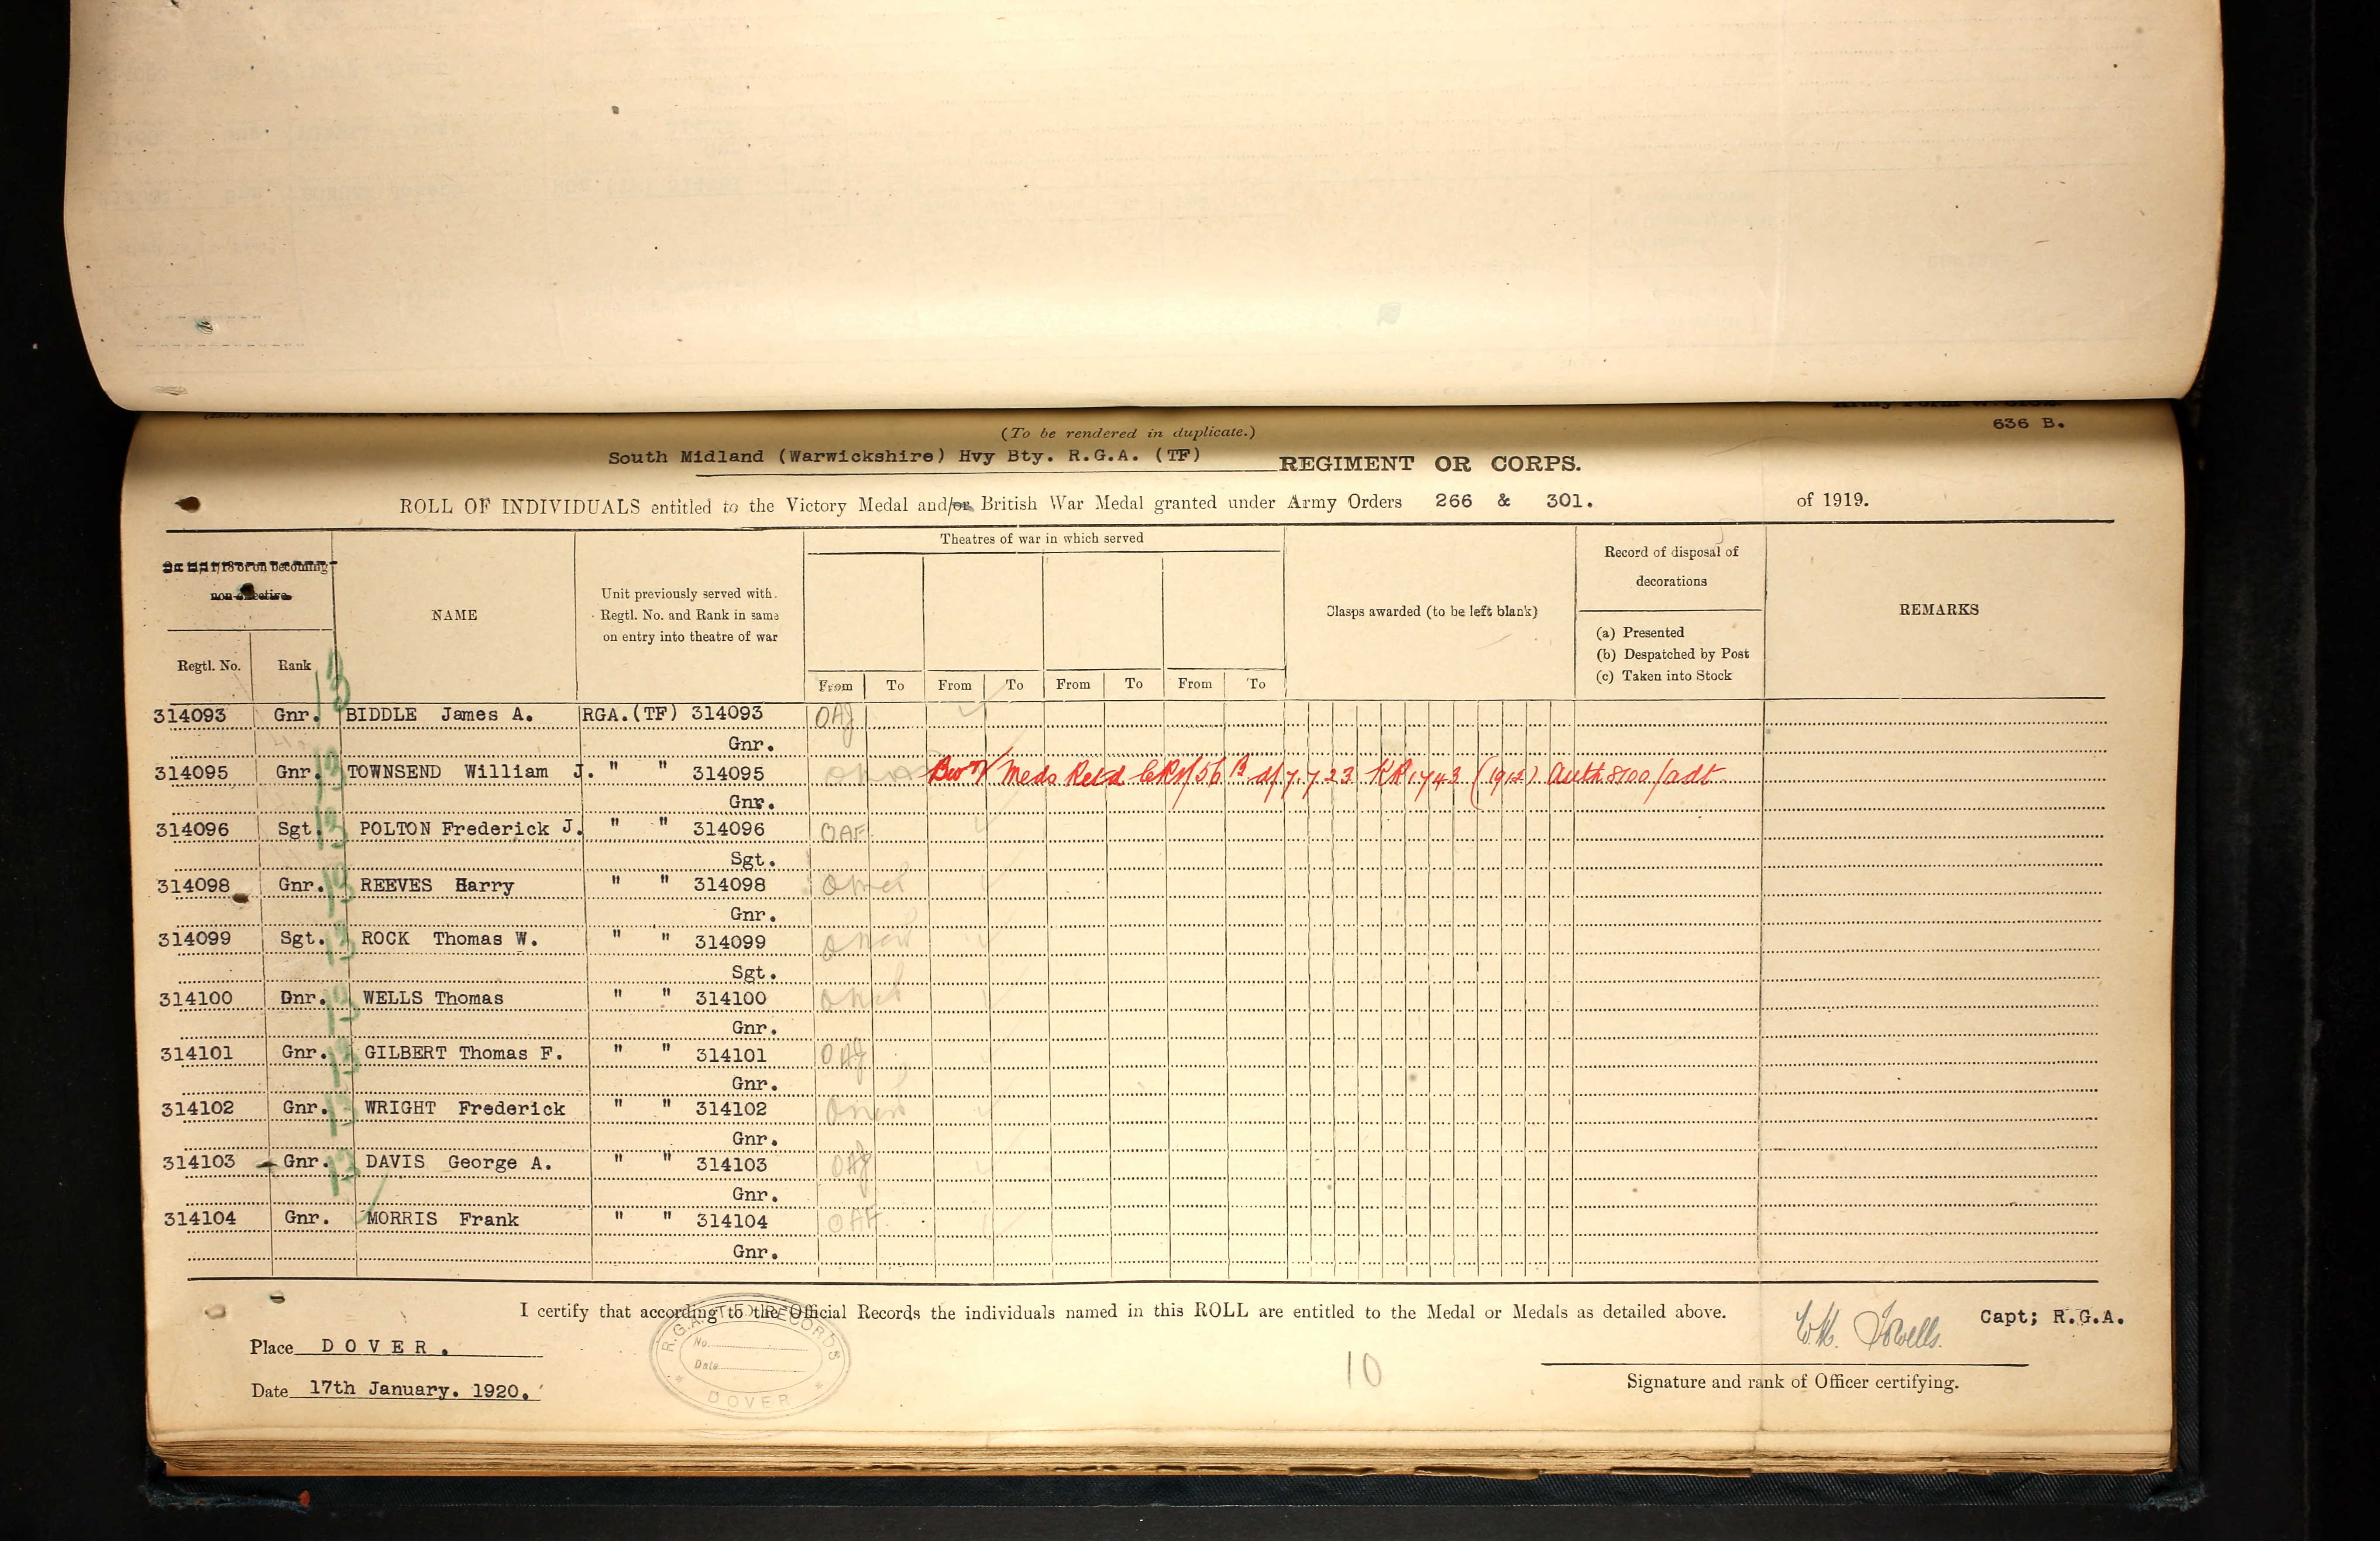 (To be rendered in duplicate.)
636 B.
South Midland (Warwickshire) Hvy Bty. R.G.A. (TF) REGIMENT OR CORPS.
ROLL OF INDIVIDUALS entitled to the Victory Medal and/or British War Medal granted under Army Orders 266 & 301. of 1919.
on becoming
non-effective.
Regtl. No. Rank
NAME
Unit previously served with.
Regtl. No. and Rank in same
on entry into theatre of war
Theatres of war in which served
From To From To From To From To
Clasps awarded (to be left blank)
Record of disposal of
decorations
(a) Presented
(b) Despatched by Post
(c) Taken into Stock
REMARKS
13
314093 Gnr. BIDDLE James A. RGA.(TF) 314093
Gnr.
314095 Gnr. 13 TOWNSEND William J. " " 314095 Meds Retd 7.7.23 KR 1743 (1912) Auth 8100/adt
Gnr.
314096 Sgt. 13 POLTON Frederick J. " " 314096 OAF
Sgt.
314098 Gnr. 13 REEVES Harry " " 314098
Gnr.
314099 Sgt. 13 ROCK Thomas W. " " 314099
Sgt.
314100 Dnr. 13 WELLS Thomas " " 314100
Gnr.
314101 Gnr. 13 GILBERT Thomas F. " " 314101
Gnr.
314102 Gnr. 13 WRIGHT Frederick " " 314102
Gnr.
314103 Gnr. 13 DAVIS George A. " " 314103
Gnr.
314104 Gnr. MORRIS Frank " " 314104 OAF
Gnr.
I certify that according to the Official Records the individuals named in this ROLL are entitled to the Medal or Medals as detailed above.
Capt; R.G.A.
Place DOVER.
Date 17th January. 1920.
R.G.A. (T.F.) RECORDS
No.
Date
DOVER
10
Signature and rank of Officer certifying.